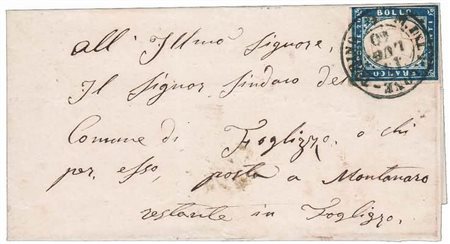 BOLLO
FRANCO
all' Illmo Signore,
Il Signor Sindaco del
Comune di Foglizzo, o chi
per, esso, posta a Montanaro
restante in Foglizzo.